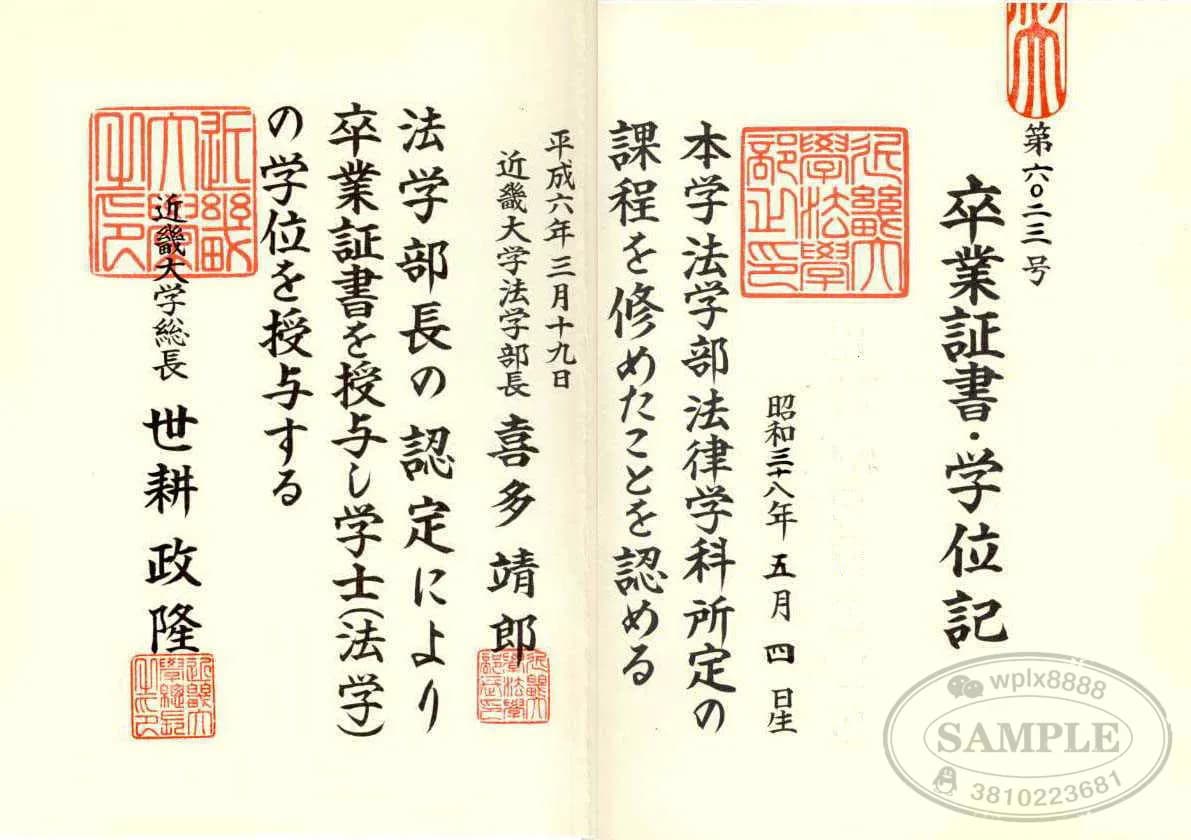 第六〇二三号
卒業証書・学位記
近畿大
學法學
部之印
昭和三十八年五月四日生
本学法学部法律学科所定の
課程を修めたことを認める
平成六年三月十九日
近畿大学法学部長 喜多靖郎
法学部長の認定により
卒業証書を授与し学士(法学)
の学位を授与する
近畿大学総長 世耕政隆
近畿
大學
之印
wplx8888
SAMPLE
3810223681